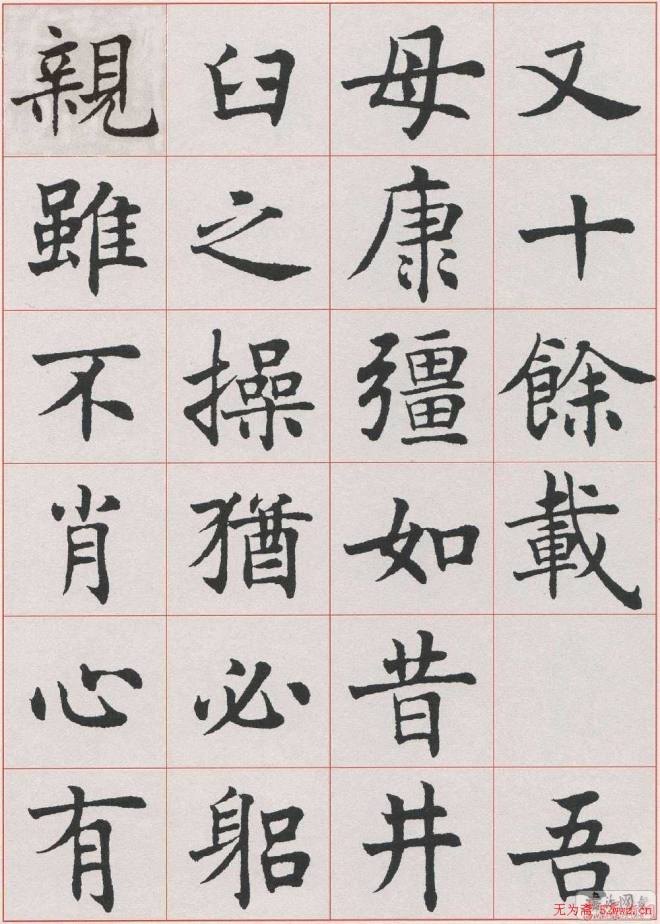 又十餘載 吾
母康彊如昔井
臼之操猶必躳
親雖不肖心有
无为斋.53wwz.cn